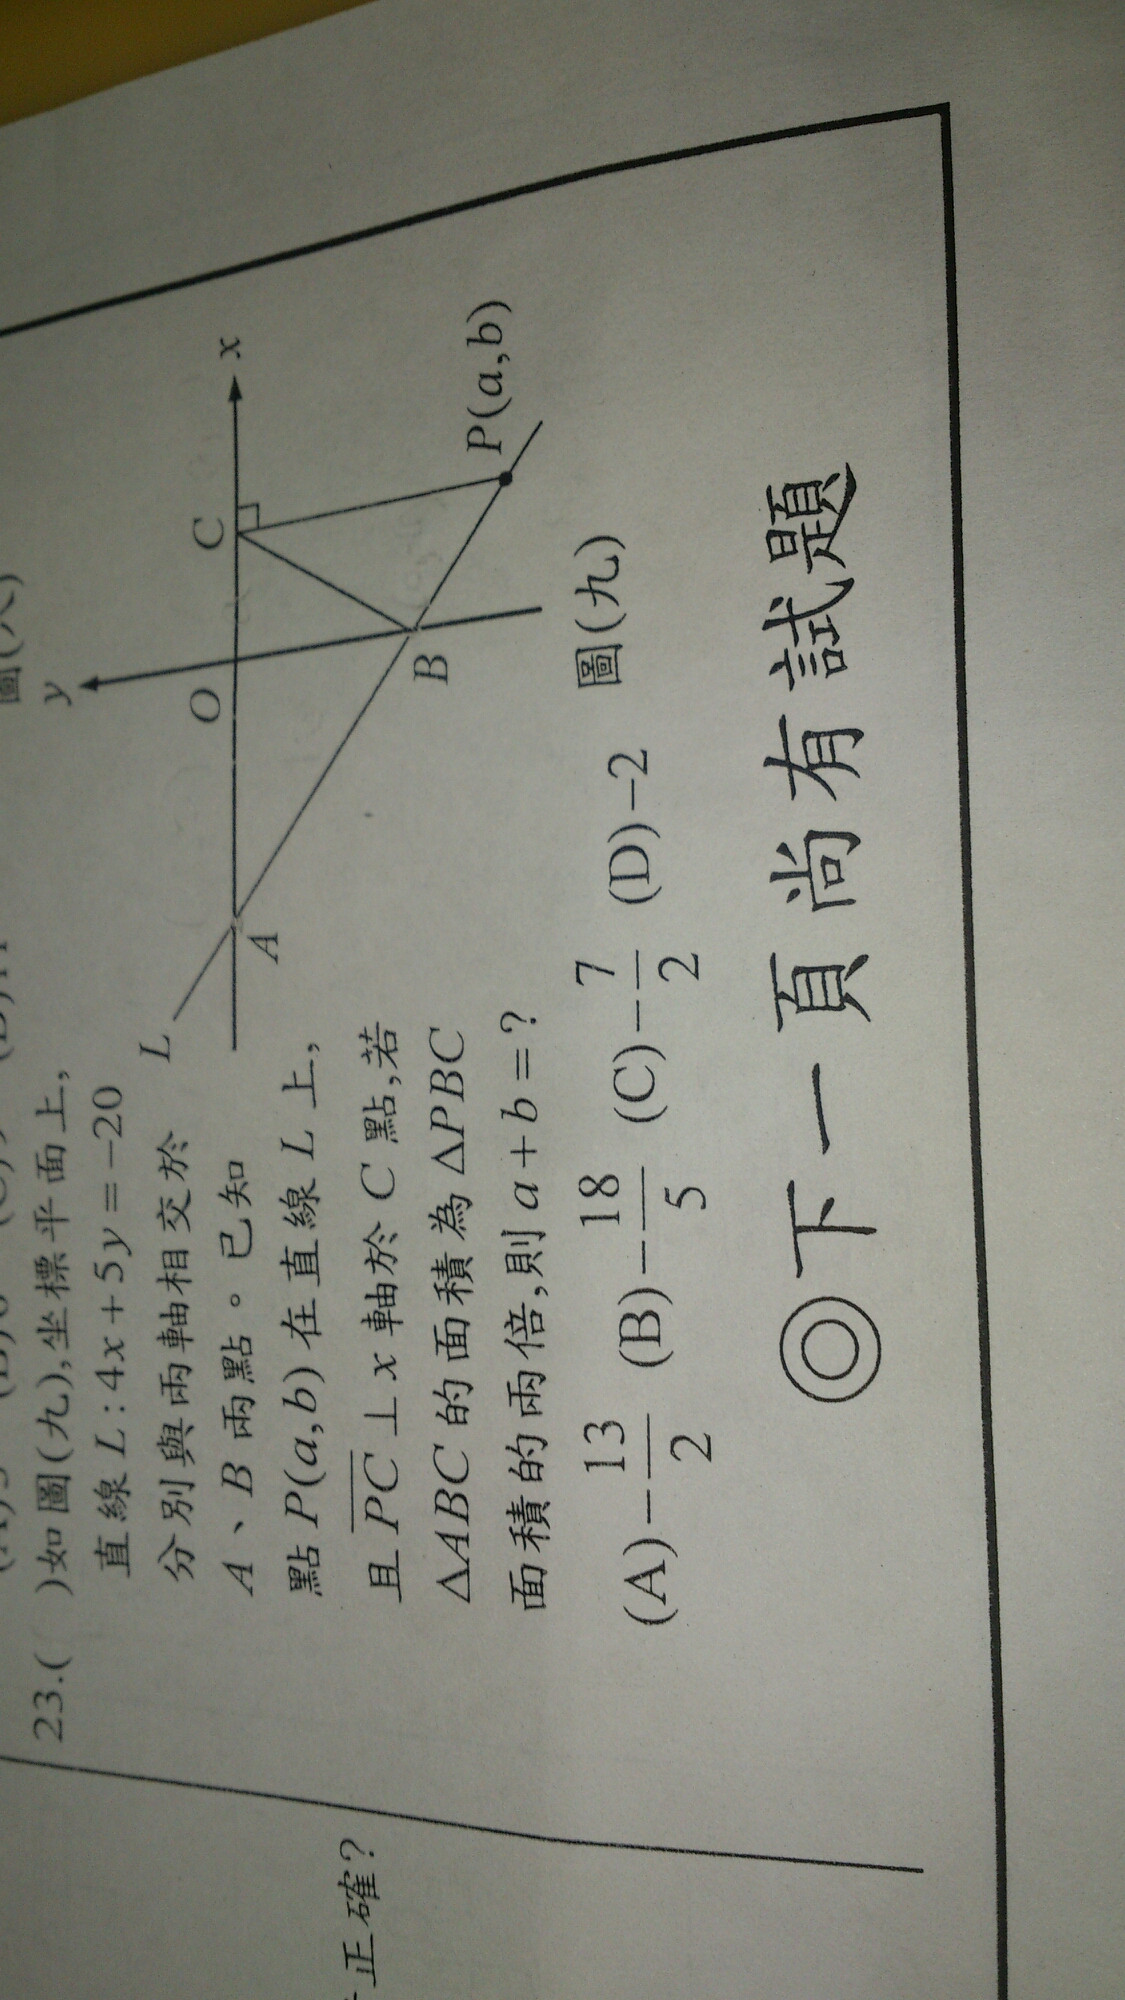 23.(　)如圖(九),坐標平面上,
直線 L:4x+5y=-20
分別與兩軸相交於
A、B 兩點。已知
點 P(a,b) 在直線 L 上,
且 PC⊥x 軸於 C 點,若
ΔABC 的面積為 ΔPBC
面積的兩倍,則 a+b=?
(A)-13/2 (B)-18/5 (C)-7/2 (D)-2
L
A
y
O
B
C
x
P(a,b)
圖(九)
◎下一頁尚有試題
正確?